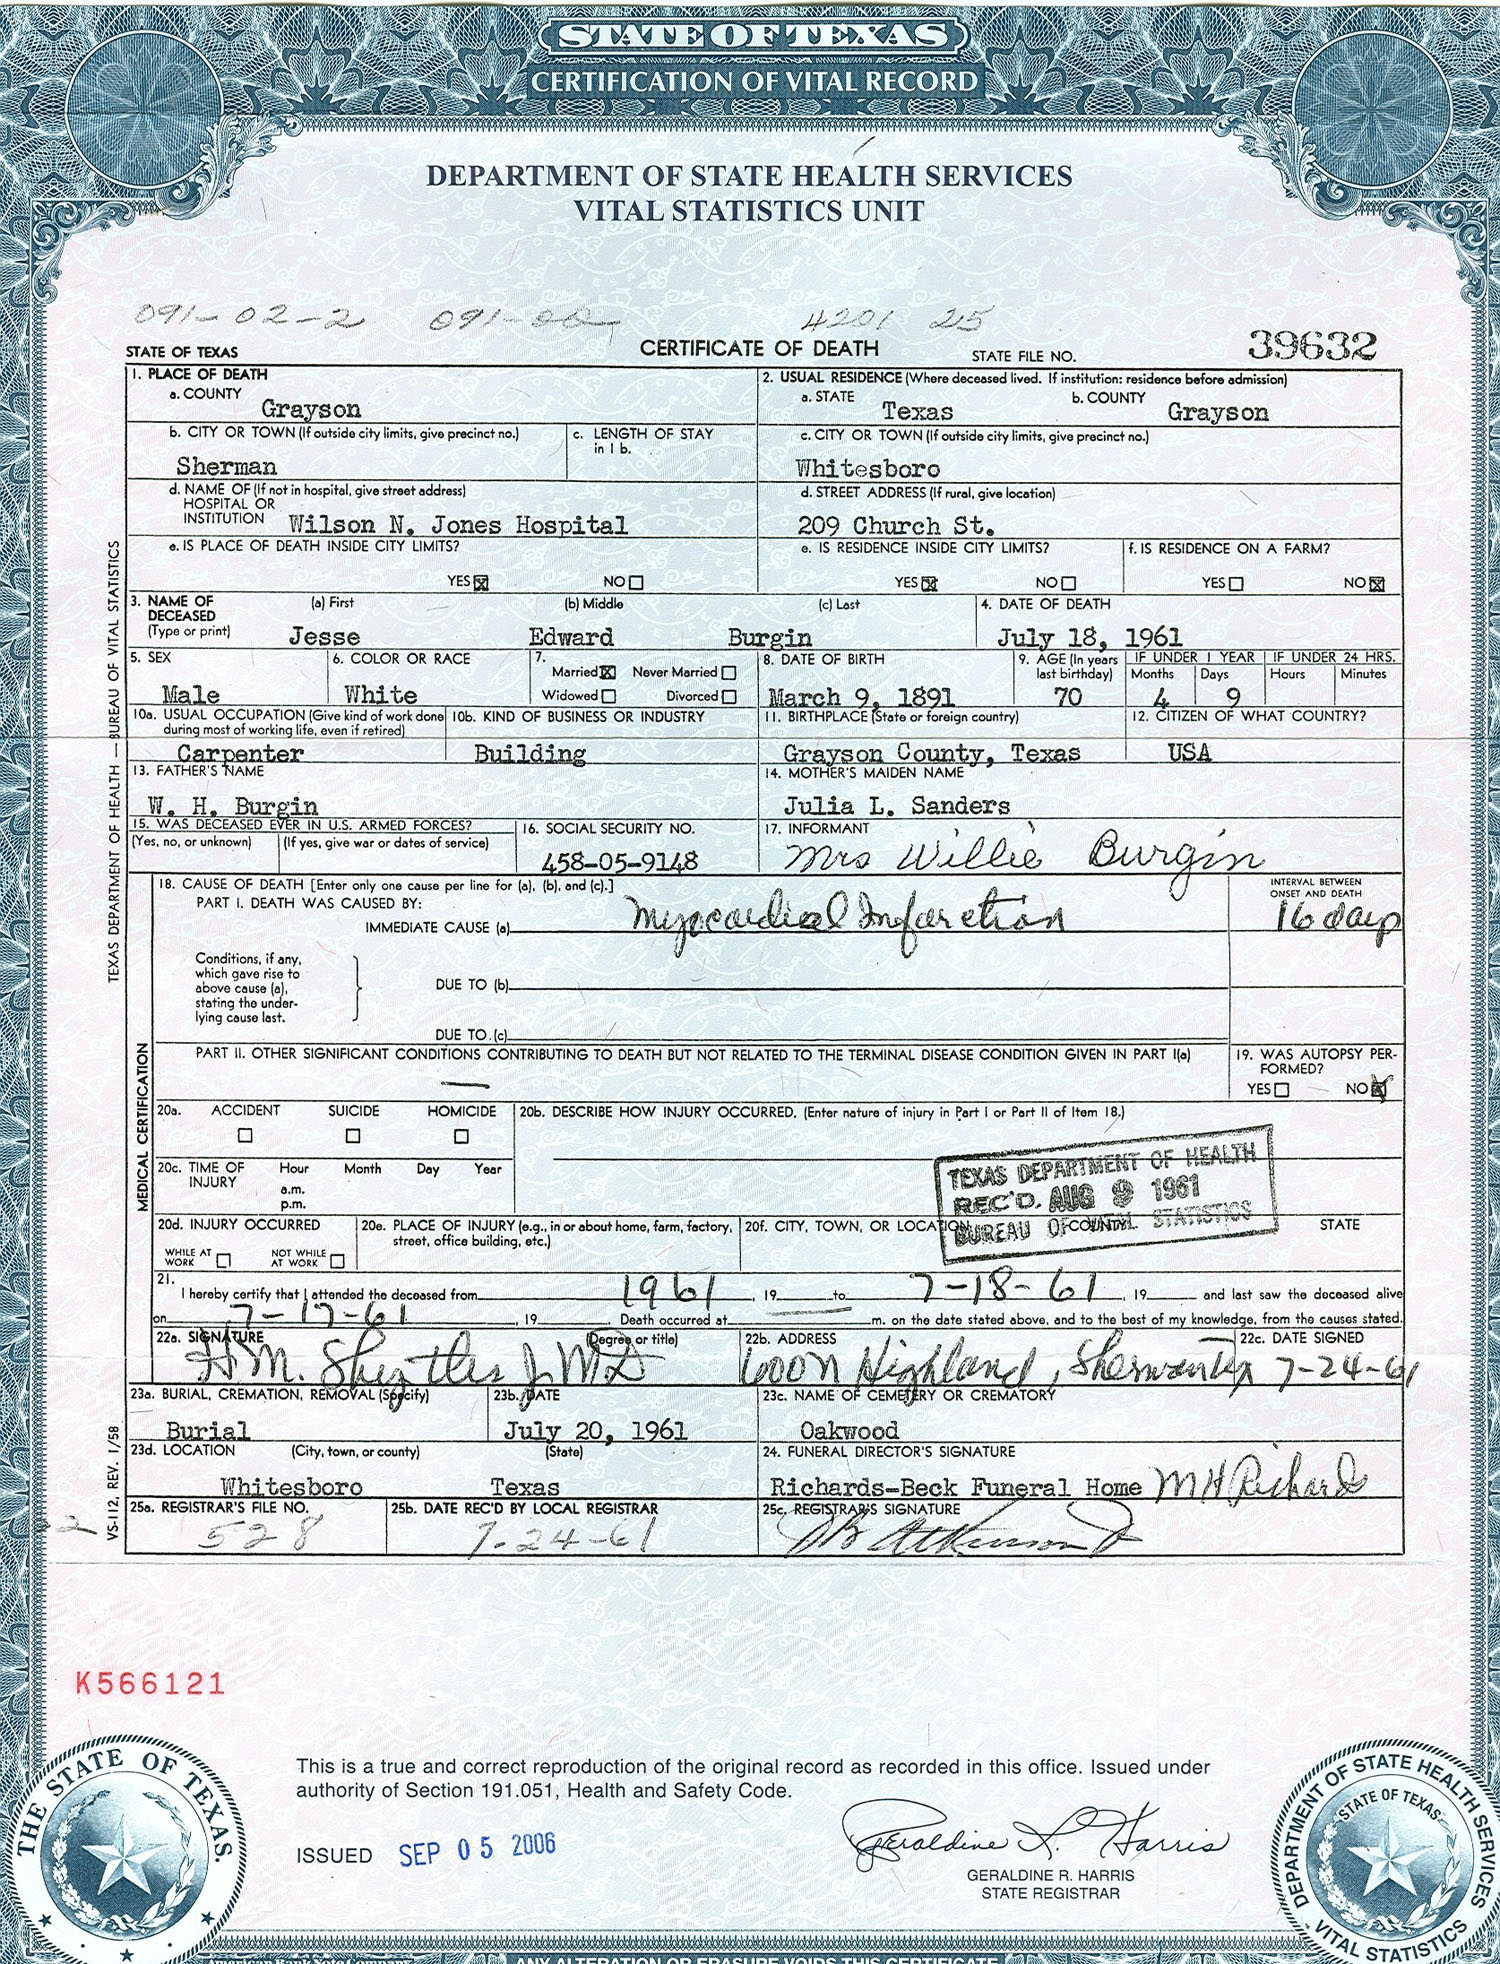 STATE OF TEXAS
CERTIFICATION OF VITAL RECORD
DEPARTMENT OF STATE HEALTH SERVICES
VITAL STATISTICS UNIT
091-02-2 091-02 4201 25
STATE OF TEXAS CERTIFICATE OF DEATH STATE FILE NO. 39632
1. PLACE OF DEATH
a. COUNTY
Grayson
2. USUAL RESIDENCE (Where deceased lived. If institution: residence before admission)
a. STATE b. COUNTY
Texas Grayson
b. CITY OR TOWN (If outside city limits, give precinct no.)
Sherman
c. LENGTH OF STAY
in 1 b.
c. CITY OR TOWN (If outside city limits, give precinct no.)
Whitesboro
d. NAME OF (If not in hospital, give street address)
HOSPITAL OR
INSTITUTION Wilson N. Jones Hospital
d. STREET ADDRESS (If rural, give location)
209 Church St.
e. IS PLACE OF DEATH INSIDE CITY LIMITS?
YES ☒ NO ☐
e. IS RESIDENCE INSIDE CITY LIMITS?
YES ☒ NO ☐
f. IS RESIDENCE ON A FARM?
YES ☐ NO ☒
3. NAME OF
DECEASED
(Type or print)
(a) First (b) Middle (c) Last
Jesse Edward Burgin
4. DATE OF DEATH
July 18, 1961
5. SEX
Male
6. COLOR OR RACE
White
7.
Married ☒ Never Married ☐
Widowed ☐ Divorced ☐
8. DATE OF BIRTH
March 9, 1891
9. AGE (In years
last birthday)
70
IF UNDER 1 YEAR
Months Days
4 9
IF UNDER 24 HRS.
Hours Minutes
10a. USUAL OCCUPATION (Give kind of work done
during most of working life, even if retired)
Carpenter
10b. KIND OF BUSINESS OR INDUSTRY
Building
11. BIRTHPLACE (State or foreign country)
Grayson County, Texas
12. CITIZEN OF WHAT COUNTRY?
USA
13. FATHER'S NAME
W. H. Burgin
14. MOTHER'S MAIDEN NAME
Julia L. Sanders
15. WAS DECEASED EVER IN U.S. ARMED FORCES?
(Yes, no, or unknown) (If yes, give war or dates of service)
16. SOCIAL SECURITY NO.
458-05-9148
17. INFORMANT
Mrs Willie Burgin
MEDICAL CERTIFICATION
18. CAUSE OF DEATH [Enter only one cause per line for (a), (b), and (c).]
PART I. DEATH WAS CAUSED BY:
IMMEDIATE CAUSE (a) Myocardial Infarction
INTERVAL BETWEEN
ONSET AND DEATH
16 days
Conditions, if any,
which gave rise to
above cause (a),
stating the under-
lying cause last.
DUE TO (b)
DUE TO (c)
PART II. OTHER SIGNIFICANT CONDITIONS CONTRIBUTING TO DEATH BUT NOT RELATED TO THE TERMINAL DISEASE CONDITION GIVEN IN PART I(a)
—
19. WAS AUTOPSY PER-
FORMED?
YES ☐ NO ☒
20a. ACCIDENT SUICIDE HOMICIDE
☐ ☐ ☐
20b. DESCRIBE HOW INJURY OCCURRED. (Enter nature of injury in Part I or Part II of Item 18.)
20c. TIME OF
INJURY
Hour Month Day Year
a.m.
p.m.
TEXAS DEPARTMENT OF HEALTH
REC'D. AUG 9 1961
BUREAU OF VITAL STATISTICS
20d. INJURY OCCURRED
WHILE AT
WORK ☐
NOT WHILE
AT WORK ☐
20e. PLACE OF INJURY (e.g., in or about home, farm, factory,
street, office building, etc.)
20f. CITY, TOWN, OR LOCATION COUNTY STATE
21.
I hereby certify that I attended the deceased from 1961, 19 to 7-18-61, 19 and last saw the deceased alive
on 7-17-61, 19 . Death occurred at m. on the date stated above, and to the best of my knowledge, from the causes stated.
22a. SIGNATURE (Degree or title)
H. M. Jr. MD
22b. ADDRESS
600 N Highland, Sherman Tex
22c. DATE SIGNED
7-24-61
23a. BURIAL, CREMATION, REMOVAL (Specify)
Burial
23b. DATE
July 20, 1961
23c. NAME OF CEMETERY OR CREMATORY
Oakwood
23d. LOCATION (City, town, or county) (State)
Whitesboro Texas
24. FUNERAL DIRECTOR'S SIGNATURE
Richards-Beck Funeral Home M H Richards
25a. REGISTRAR'S FILE NO.
528
25b. DATE REC'D BY LOCAL REGISTRAR
7-24-61
25c. REGISTRAR'S SIGNATURE
TEXAS DEPARTMENT OF HEALTH — BUREAU OF VITAL STATISTICS
VS-112, REV. 1/58
K566121
This is a true and correct reproduction of the original record as recorded in this office. Issued under
authority of Section 191.051, Health and Safety Code.
ISSUED SEP 05 2006
Geraldine R. Harris
GERALDINE R. HARRIS
STATE REGISTRAR
THE STATE OF TEXAS.
DEPARTMENT OF STATE HEALTH SERVICES
STATE OF TEXAS
VITAL STATISTICS
ANY ALTERATION OR ERASURE VOIDS THIS CERTIFICATE